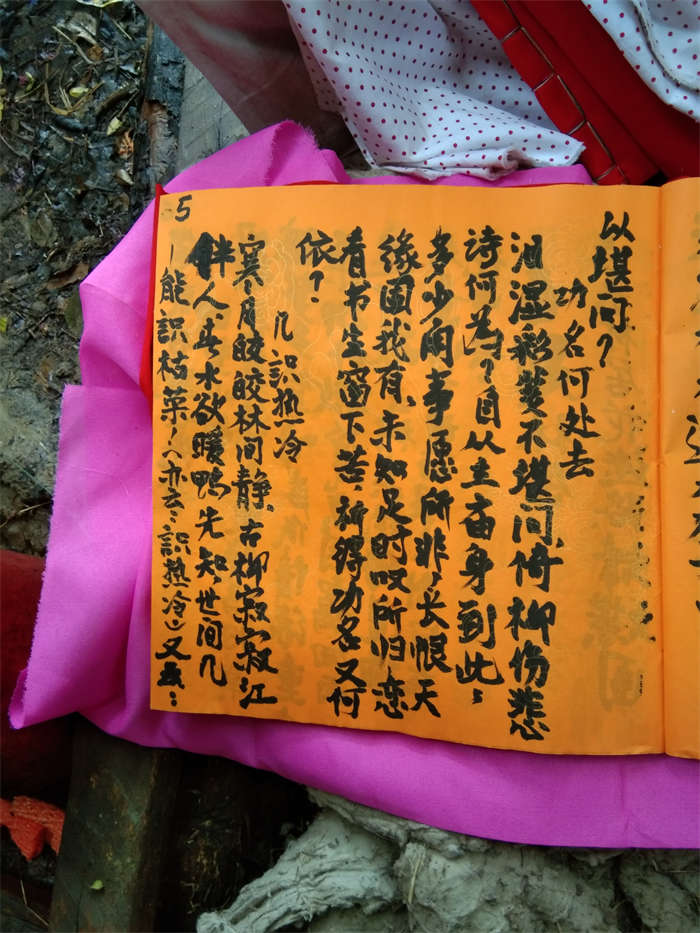 以堪问?
功名何处去
泪湿彩笺不堪问,倚柳伤悲
诗何为?自从生苗身到此;
多少闲事愿所非,长恨天
缘国我有,未知足时叹所归恋
看书生窗下苦,祈得功名又何
依?
几识热冷
寒月皎皎林间静,古柳寂寂江
畔人,春水欲暖鸭先知,世间几
能识枯草(亦云:识热冷)又
5